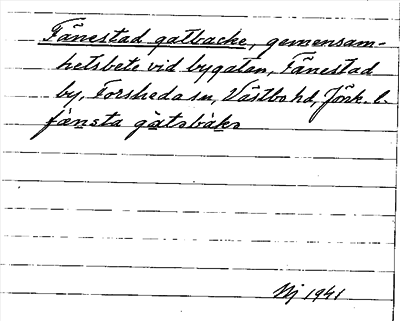 Fånestad gatbacke, gemensam-
hetsbete vid bygatan, Fånestad
by, Forsheda sn, Västbo hd, Jönk. l.
fånsta gatsbàkə
Nj 1941